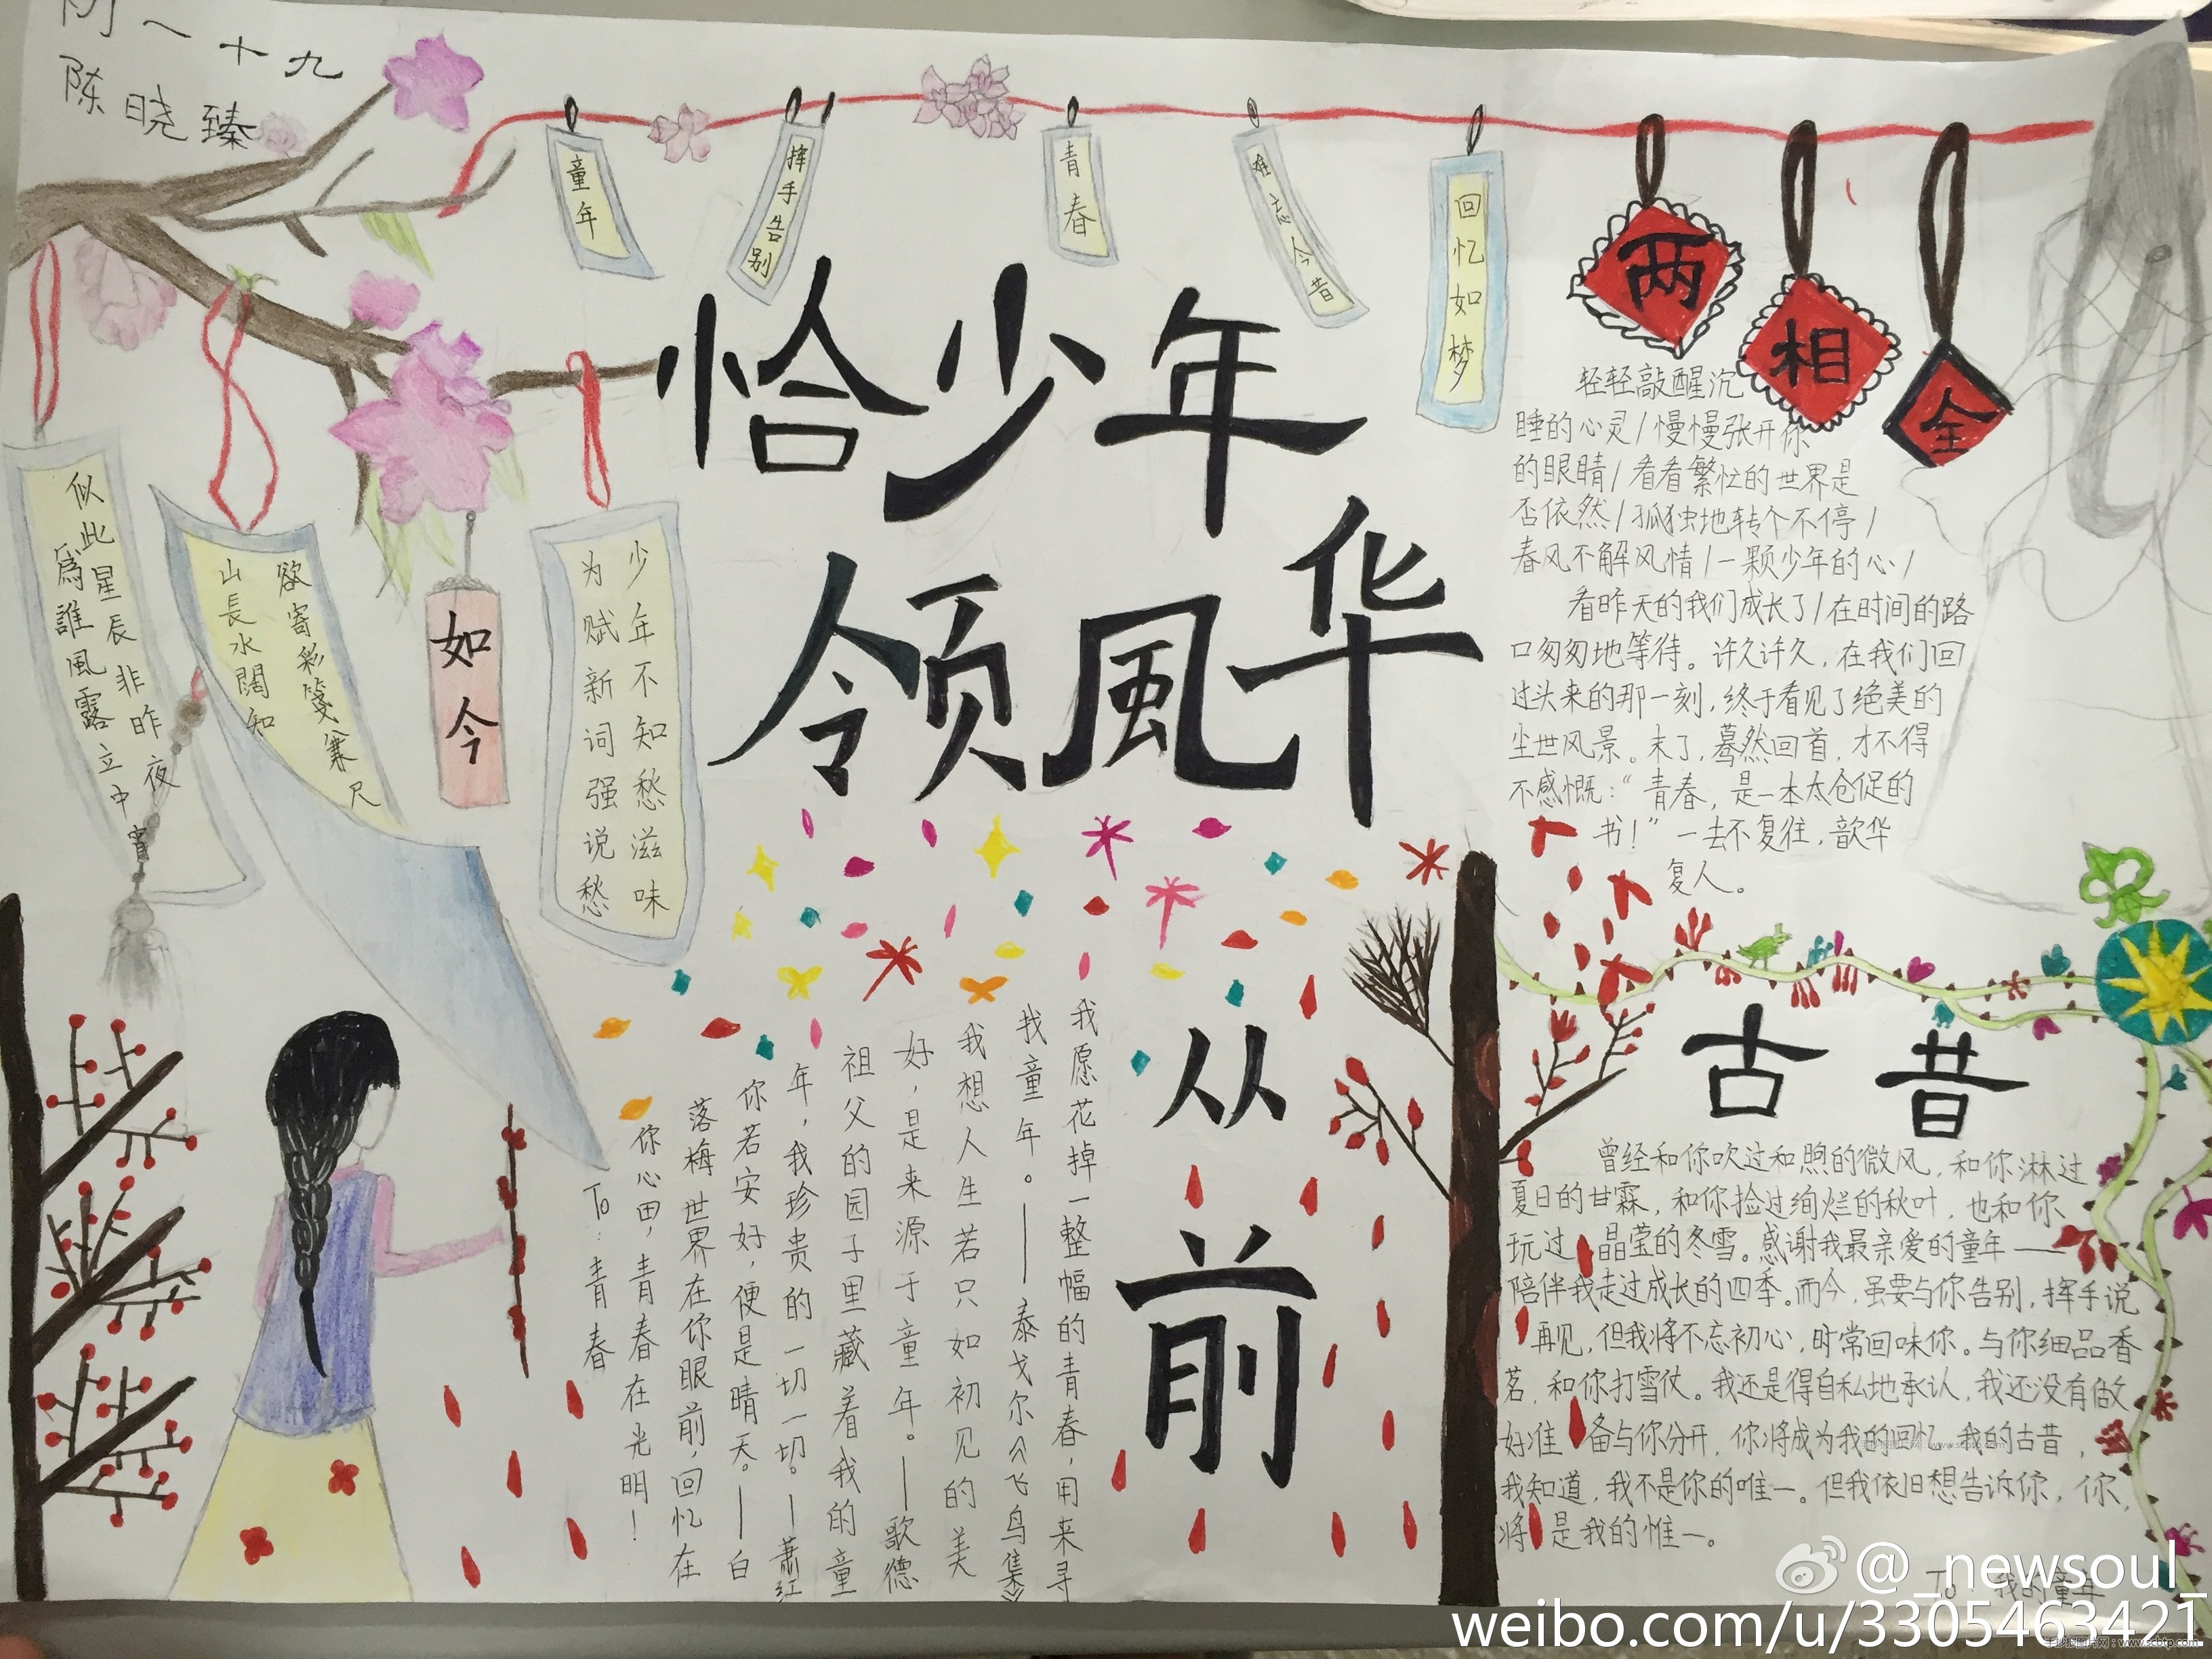 一十九
陈晓臻
童年
挥手告别
青春
难忘今昔
回忆如梦
两
相
全
恰少年
领風华
似此星辰非昨夜
為誰風露立中宵
欲寄彩箋兼尺
山長水闊知
如今
少年不知愁滋味
为赋新词强说愁
轻轻敲醒沉
睡的心灵/慢慢张开你
的眼睛/看看繁忙的世界是
否依然/孤独地转个不停/
春风不解风情/一颗少年的心/
看昨天的我们成长了/在时间的路
口匆匆地等待。许久许久,在我们回
过头来的那一刻,终于看见了绝美的
尘世风景。末了,蓦然回首,才不得
不感慨:“青春,是一本太仓促的
书!”一去不复往,歆华
复人。
从前
我愿花掉一整幅的青春,用来寻
找童年。——泰戈尔《飞鸟集》
我想人生若只如初见的美
好,是来源于童年。——歌德
祖父的园子里藏着我的童
年,我珍贵的一切一切。—萧红
你若安好,便是晴天。——白
落梅世界在你眼前,回忆在
你心田,青春在光明!
To:青春
古昔
曾经和你吹过和煦的微风,和你淋过
夏日的甘霖,和你捡过绚烂的秋叶,也和你
玩过晶莹的冬雪。感谢我最亲爱的童年——
陪伴我走过成长的四季。而今,虽要与你告别,挥手说
再见,但我将不忘初心,时常回味你。与你细品香
茗,和你打雪仗。我还是得自私地承认,我还没有做
好准备与你分开,你将成为我的回忆,我的古昔,
我知道,我不是你的唯一。但我依旧想告诉你,你,
将是我的惟一。
To:我的童年
@_newsoul_
weibo.com/u/3305463421
手抄报图片网:www.scbtp.com